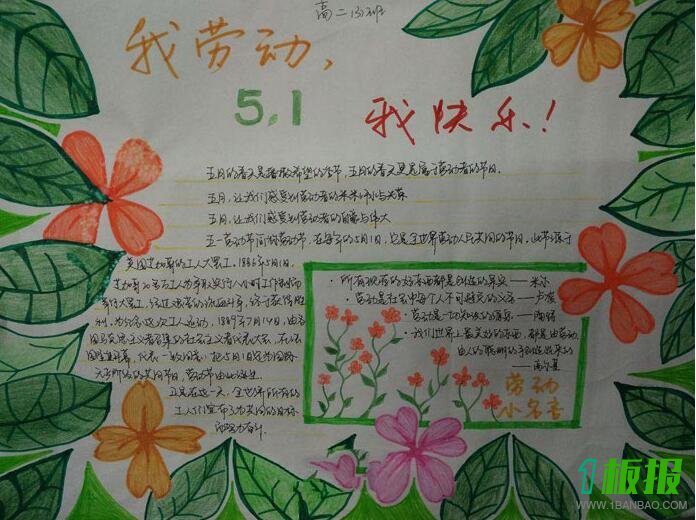 高二
我劳动,
5.1
我快乐!
五月的春天是播撒希望的季节,五月的春天更是属于劳动者的节日。
五月,让我们感受到劳动者的
与光荣
五月,让我们感受到劳动者的
与伟大
五一劳动节简称劳动节,在每年的5月1日,它是全世界劳动人民共同的节日。此节源于
美国芝加哥的工人大罢工。1886年5月1日,
芝加哥的
工人为争取实行八小时工作制而
举行大罢工,经过
的流血斗争,终于获得胜
利。为纪念这次工人运动,1889年7月14日,由各
国马克思主义者召集的社会主义者代表大会,在法
国
开幕,代表一致同意:把5月1日定为国际
无产阶级的共同节日,劳动节由此诞生。
在这一天,全世界所有的
工人们
为共同的目标
而努力奋斗。
· 所有现存的好东西都是创造的果实——米尔
· 劳动是社会中每个人不可避免的义务——卢梭
· 劳动是一切
的源泉——陶铸
· 我们世界上最美好的东西,都是由劳动、
由人的聪明的手创造出来的
——高尔基
劳动
小名言
1板报
WWW.1BANBAO.COM